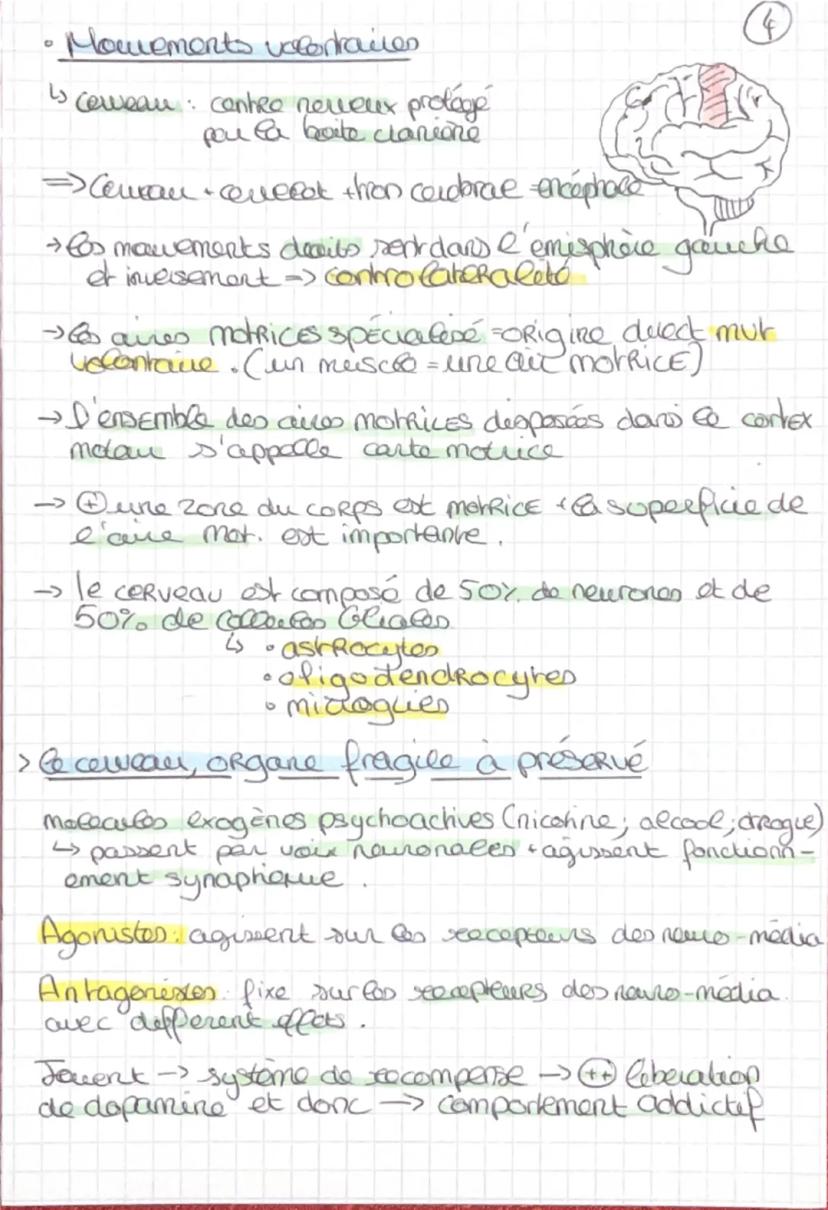 4
• Mouvements volontaires
↳ cerveau : centre nerveux protégé
par la boite cranière
=> Cerveau + cervelet + tron cerebrae = encéphale
→ les mouvements droits sont dans l'emisphère gauche
et inversement => controlateralité
→ les aires motrices spécialisé = origine direct mvt
volontaire . (un muscle = une air motrice)
→ L'ensemble des aires motrices disposées dans le cortex
moteur s'appelle carte motrice
→ ⊕ une zone du corps est motrice + la superficie de
l'aire mot. est importante .
→ le cerveau est composé de 50% de neurones et de
50% de cellules Gliales
↳ • astrocytes
• oligodendrocytes
• microglies
> le cerveau, organe fragile à préservé
molécules exogènes psychoactives (nicotine ; alcool ; drogue)
↳ passent par voix neuronales + agissent fonctionn-
ement synaptique .
Agonistes : agissent sur les recepteurs des neuro-média
Antagonistes : fixe sur les recepteurs des neuro-média.
avec different effets .
Jouent → système de recompense → (++) liberation
de dopamine et donc → comportement addictif